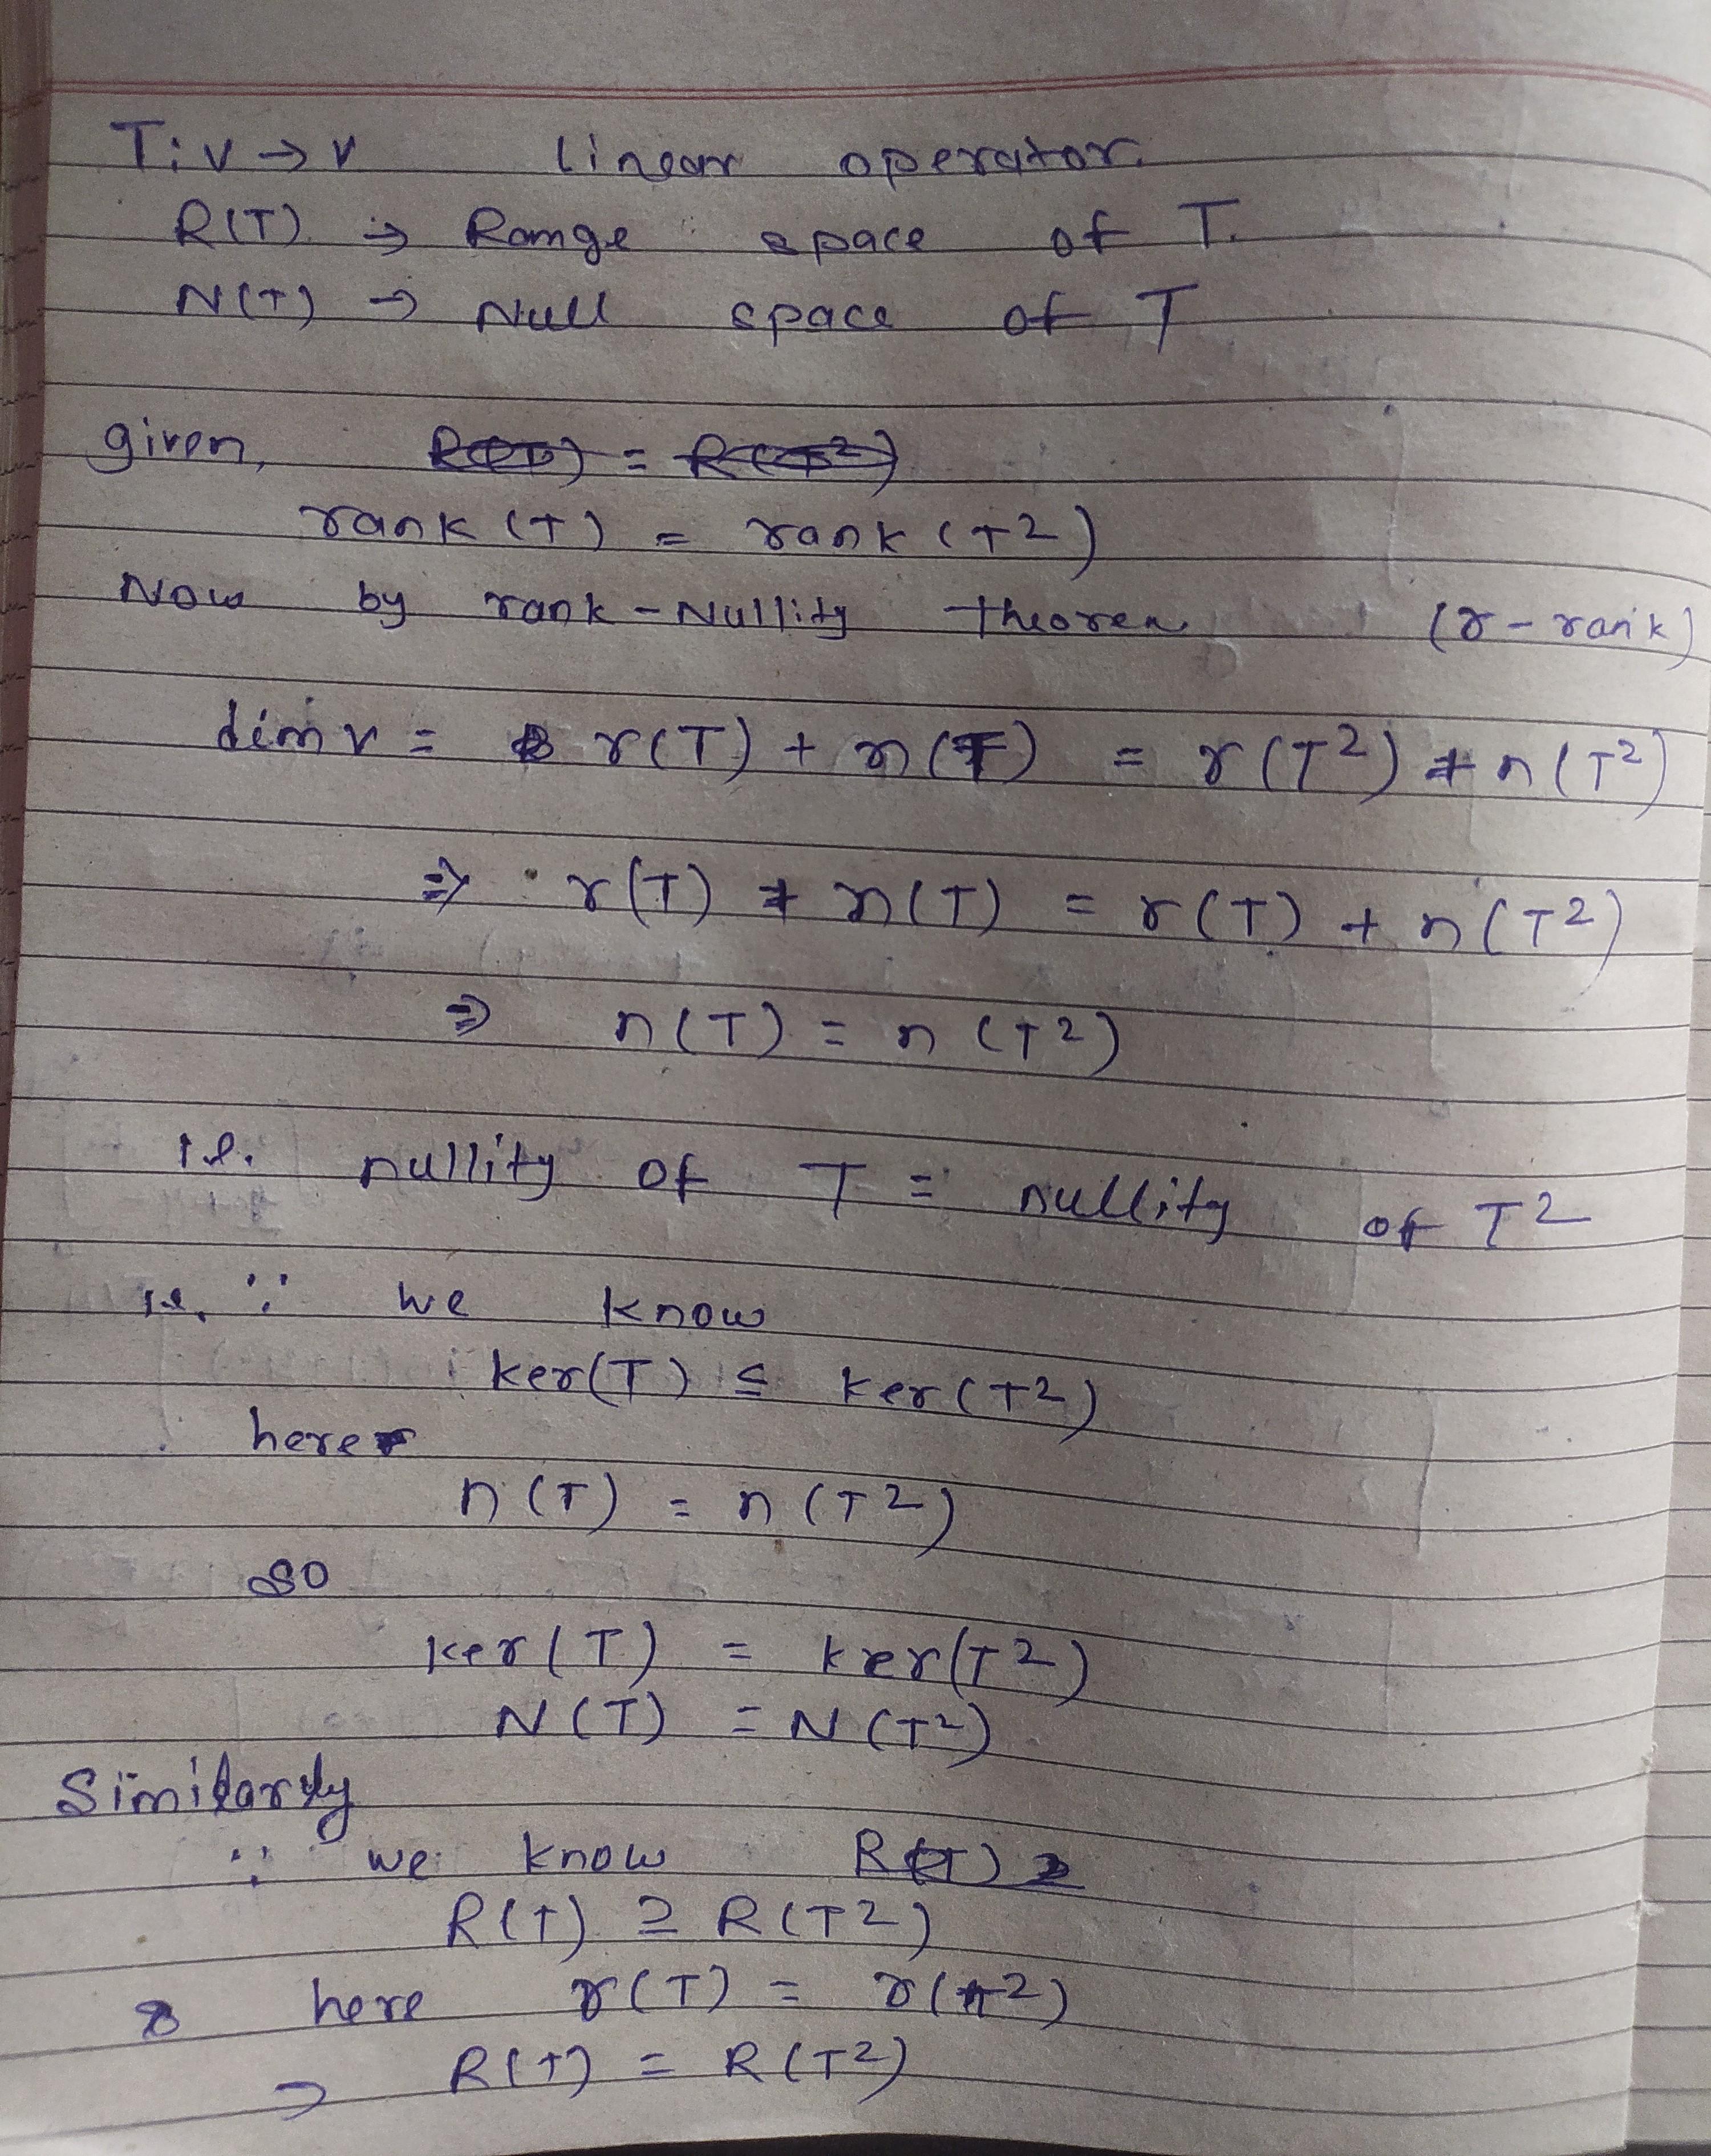 T: V → V linear operator.
R(T) → Range space of T.
N(T) → Null space of T
given, R(T) = R(T²)
rank (T) = rank (T²)
Now by rank - Nullity theorem (r - rank)
dim V = r(T) + n(T) = r(T²) + n(T²)
⇒ r(T) + n(T) = r(T) + n(T²)
⇒ n(T) = n(T²)
i.e. nullity of T = nullity of T²
i.e. ∵ we know
ker(T) ⊆ ker(T²)
here
n(T) = n(T²)
so
ker(T) = ker(T²)
N(T) = N(T²)
Similarly
∵ we know R(T) ⊇
R(T) ⊇ R(T²)
here r(T) = r(T²)
⇒ R(T) = R(T²)